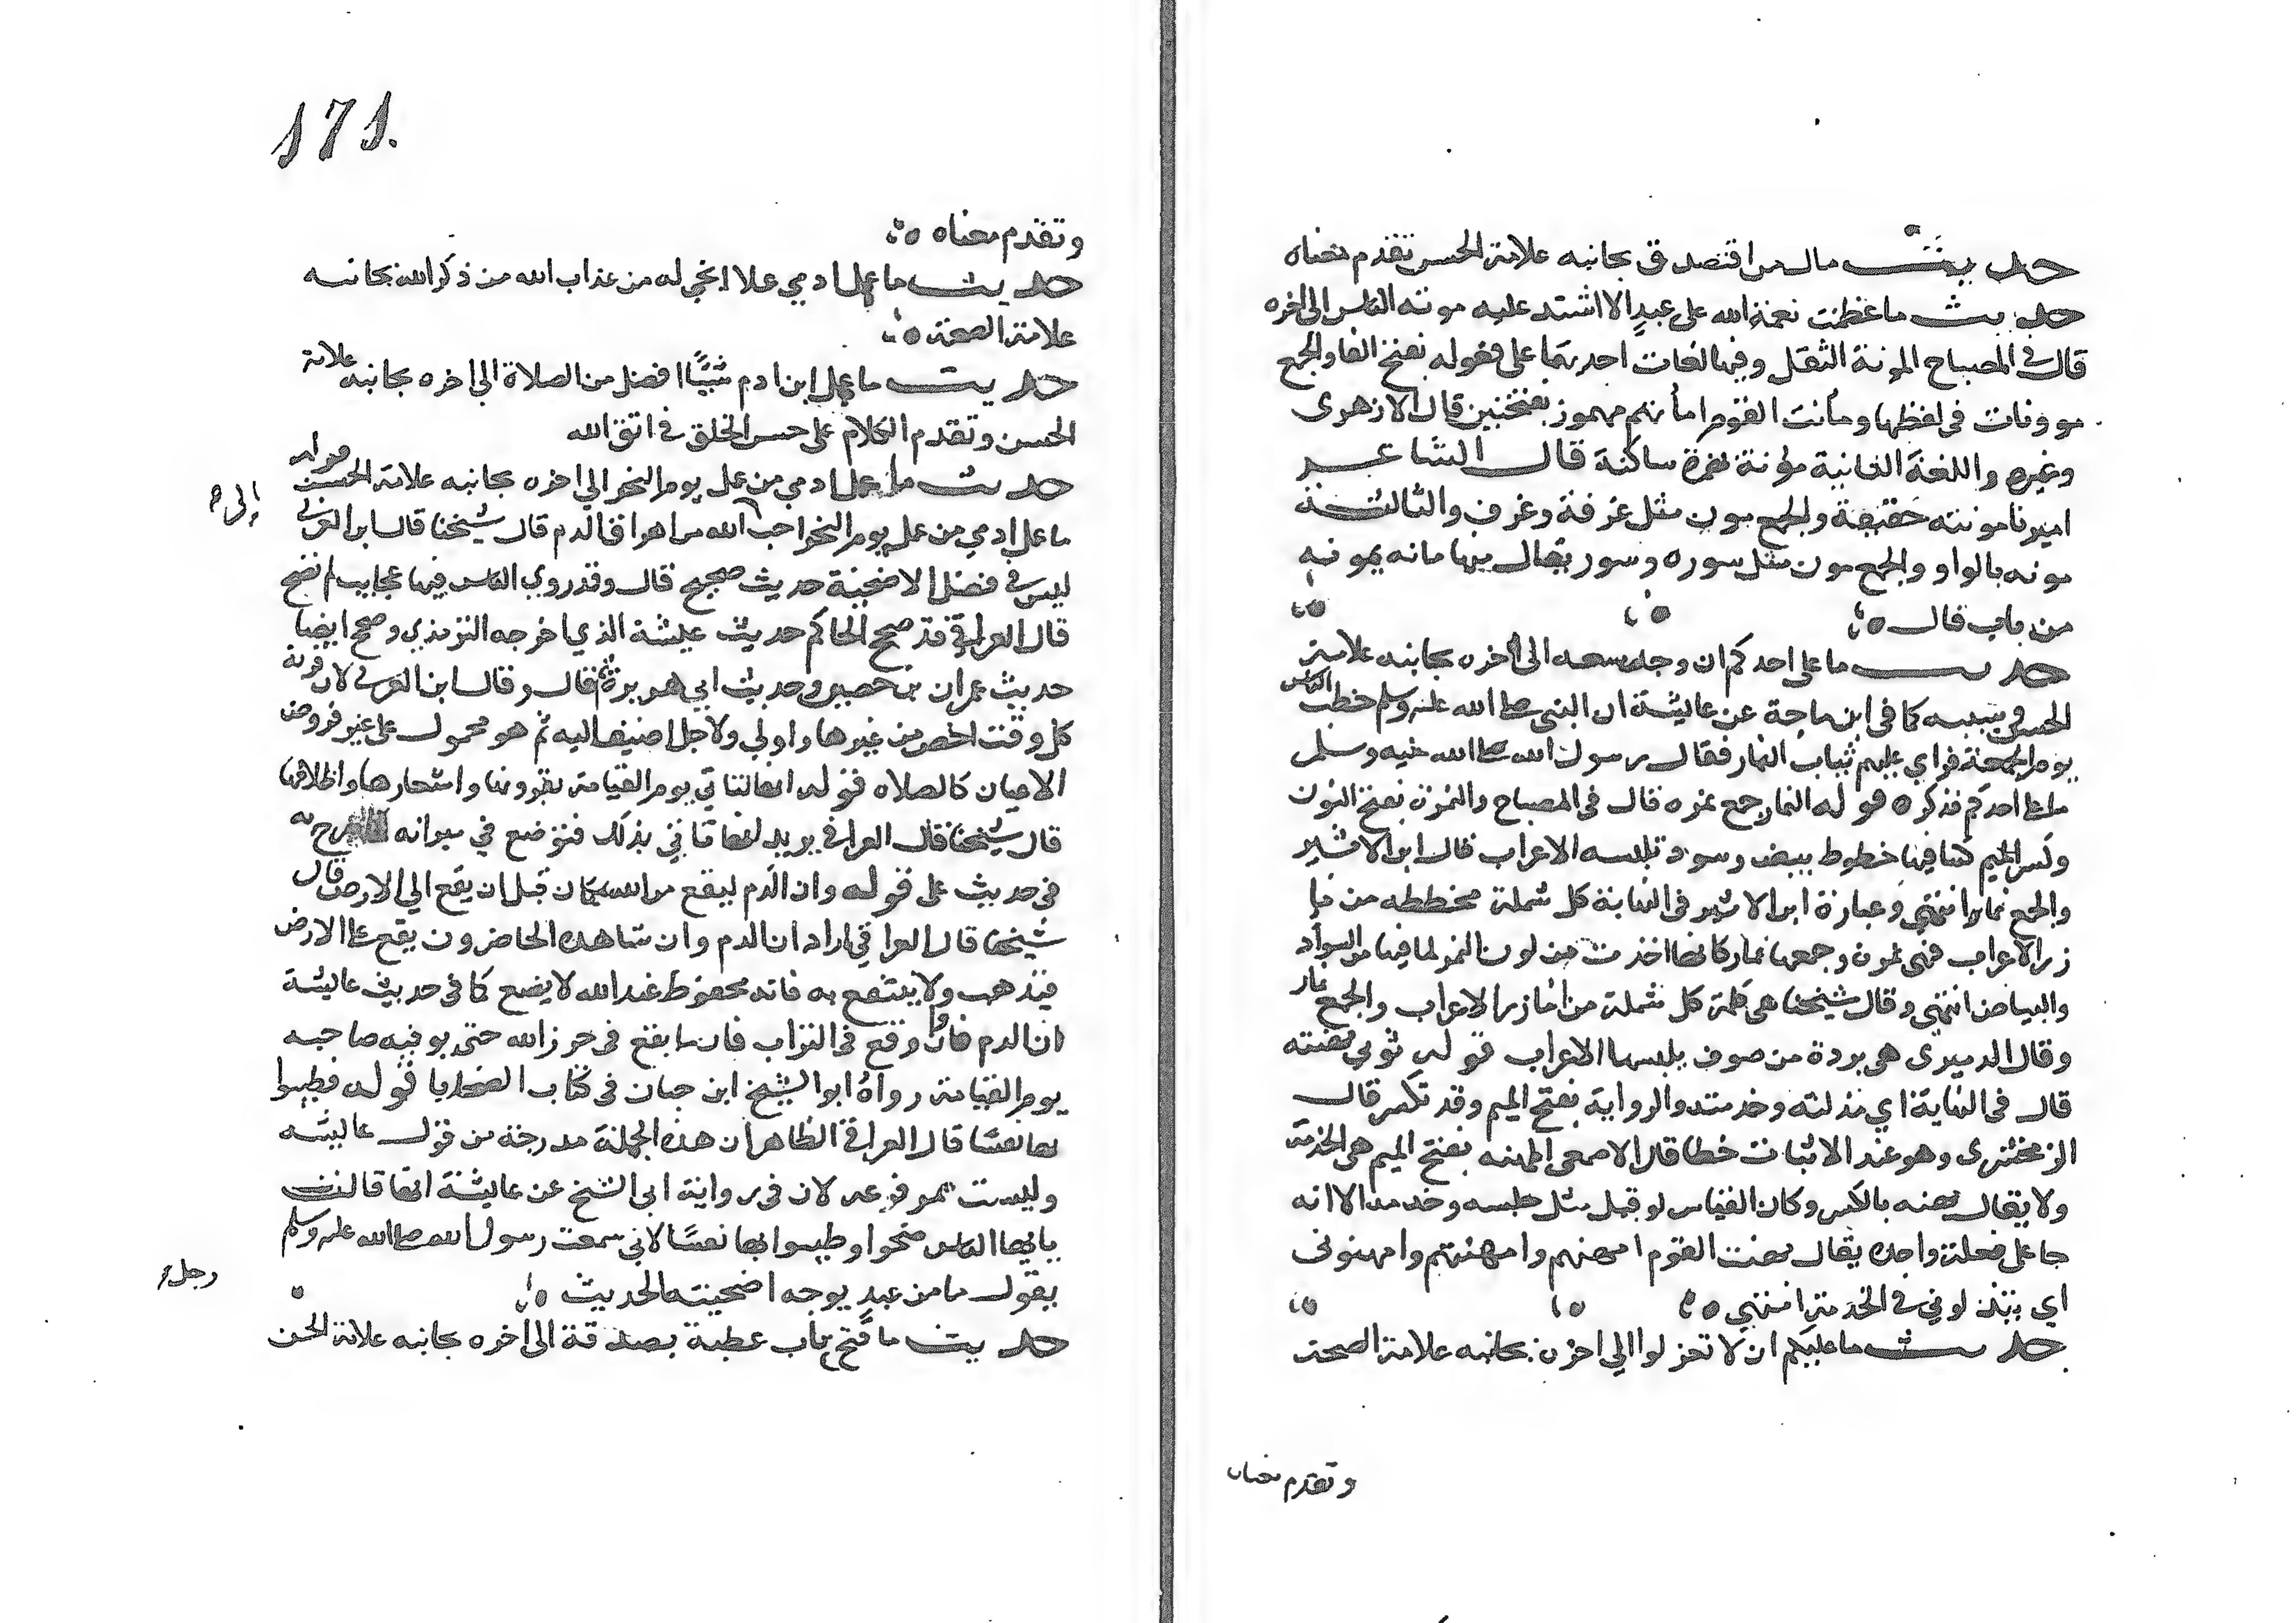 حديث مال من اقتصد وق بجانبه علامة الحسن تقدم معناه
حديث ما عظمت نعمة الله على عبد الا اشتد عليه مونة الناس الى اخره
قال في المصباح المونة الثقل وفيها لغات احديها على فعوله بفتح الفا والجمع
موونات في لفظها ومأنت القوم امأنهم مهموز بفتحتين قال الازهرى
وغيره واللغة الثانية مؤنة بهمزة ساكنة قال الشاعر
اميرنا مونته خفيفة والجمع مون مثل غرفة وغرف والثالثة
مونه بالواو والجمع مون مثل سوره وسور يقال منها مانه يمونه
من باب قال
حديث ما على احدكم ان وجد سعه الى اخره بجانبه علامة
الحسن في سببه كما في ابن ماجة عن عايشة ان النبي صلى الله عليه وسلم خطب الناس
يوم الجمعة فراي عليهم ثياب النمار فقال رسول الله صلى الله عليه وسلم
ما على احدكم فذكره قوله النمار جمع نمره قال في المصباح والنمرة بفتح النون
وكسر الميم كسا فيها خطوط بيض وسود تلبسه الاعراب قال ابن الاثير
والجمع نمار انتهي وعبارة ابن الاثير في النهاية كل شملة مخططه من ما
زر الاعراب فهي نمرة وجمعها نمار كانها اخذت من لون النمر لما فيها من السواد
والبياض انتهي وقال شيخنا هى كلمة كل شملة من مازر الاعراب والجمع نمار
وقال الدميرى هى بردة من صوف يلبسها الاعراب قوله ثوبي مهنته
قال في النهاية اي بذلته وخدمته والرواية بفتح الميم وقد تكسر قال
الزمخشرى وهو عند الاثبات خطا قال الاصمعى المهنه بفتح الميم هى الخدمة
ولا يقال مهنه بالكسر وكان القياس لو قيل مثل جلسه وخدمه الا انه
جا على فعلة واحدة يقال مهنت القوم امهنهم وامهنتهم وامهنونى
اي بتذلوني في الخدمة انتهي
حديث ما عليكم ان لا تعزلوا الي اخره بجانبه علامة الصحة
وتقدم معناه
171.
وتقدم معناه
حديث ما عمل ادمي عملا انجي له من عذاب الله من ذكر الله بجانبه
علامة الصحة
حديث ما عمل ابن ادم شيئًا افضل من الصلاة الي اخره بجانبه علامة
الحسن وتقدم الكلام على حسن الخلق في اتق الله
حديث ما عمل ادمي من عمل يوم النحر الي اخره بجانبه علامة الحسن قوله
ما عمل ادمي من عمل يوم النحر احب الله من اهراق الدم قال شيخنا قال ابن العربي
إلى ه
ليس في فضل الاضحية حديث صحيح قال وقد روي الناس فيها عجايب لم تصح
قال العراقي قد صحح الحاكم حديث عايشة الذي اخرجه الترمذي وصحح ايضا
حديث عمران بن حصين وحديث ابي هريرة ثم قال وقال ابن العربي لان قربة
كل وقت اخص من غيرها واولي ولاجل اضيف اليه ثم هو محمول على غير فروض
الاعيان كالصلاه قوله انها لتاتي يوم القيامة بقرونها واشعارها واظلافها
قال شيخنا قال العراقي يريد انها تاتي بذلك فتوضع في ميزانه كما صرح به
في حديث على قوله وان الدم ليقع من الله بمكان قبل ان يقع الي الارض قال
شيخنا قال العراقي اراد ان الدم وان شاهده الحاضرون يقع على الارض
فيذهب ولا ينتفع به فانه محفوظ عند الله لا يضيع كما في حديث عايشة
ان الدم وان وقع في التراب فانما يقع في حرز الله حتى يوفيه صاحبه
يوم القيامة رواه ابو الشيخ ابن حبان في كتاب الضحايا قوله فطيبوا
بها نفسًا قال العراقي الظاهر ان هذه الجملة مدرجة من قول عايشه
وليست بمرفوعه لان في رواية ابي الشيخ عن عايشة انها قالت
يا ايها الناس ضحوا وطيبوا بها نفسًا لاني سمعت رسول الله صلى الله عليه وسلم
يقول ما من عبد يوجه اضحيته الحديث
حديث ما فتح باب عطية بصدقة الى اخره بجانبه علامة الحسن
رجل